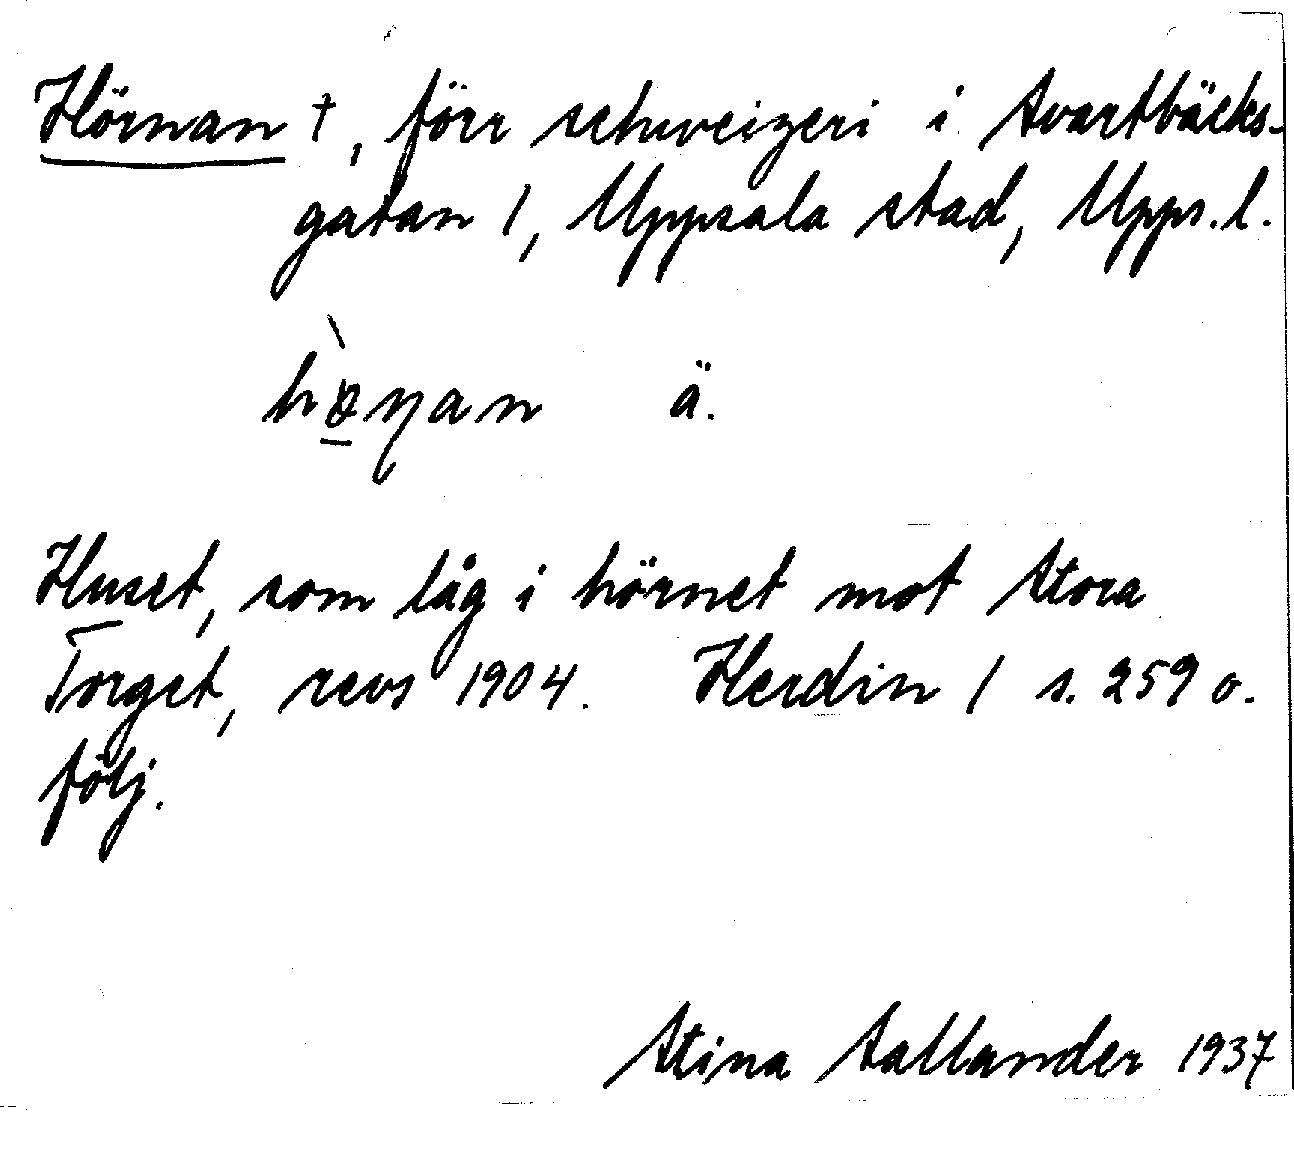 Hörnan †, förr schweizeri i Svartbäcks-
gatan 1, Uppsala stad, Upps. l.
hø̠̀ɳan ä.
Huset, som låg i hörnet mot Stora
Torget, revs 1904. Herdin 1 s. 259 o.
följ.
Stina Sallander 1937